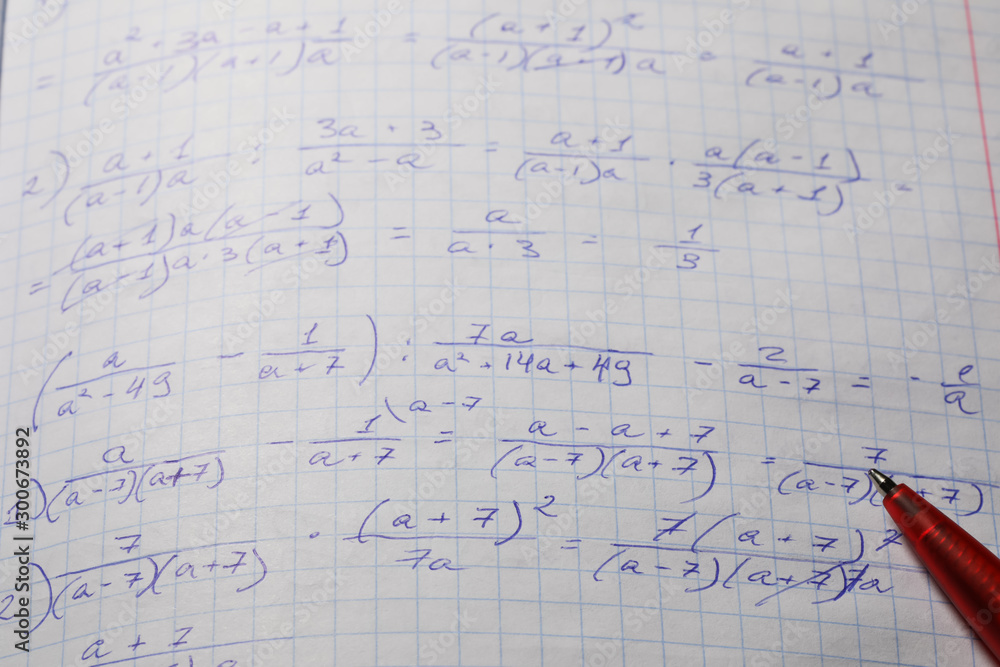 = (a² + 3a - a + 1)/((a-1)(a+1)a) = (a+1)²/((a-1)(a+1)a) = (a+1)/((a-1)a)
2) (a+1)/((a-1)a) : (3a+3)/(a²-a) = (a+1)/((a-1)a) · a(a-1)/(3(a+1)) =
= (a+1)a(a-1)/((a-1)a·3(a+1)) = a/(a·3) = 1/3
(a/(a²-49) - 1/(a+7)) : 7a/(a²+14a+49) - 2/(a-7) =
1) a/((a-7)(a+7)) - 1\a-7/(a+7) = (a-a+7)/((a-7)(a+7)) = 7/((a-7)(a+7))
2) 7/((a-7)(a+7)) · (a+7)²/7a = 7(a+7)²/((a-7)(a+7)7a)
a+7
Adobe Stock | #300673892